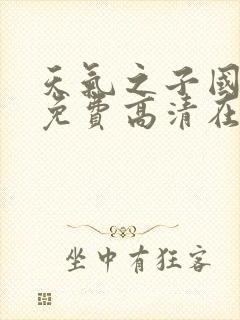 天氣之子國
免費高清在
坐中有狂客